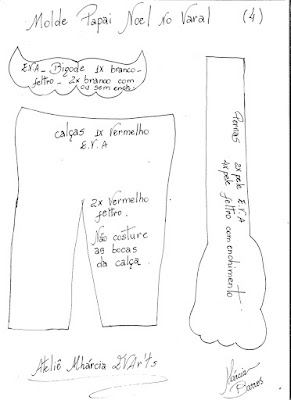 Molde Papai Noel No Varal (4)
E.V.A - Bigode 1x branco -
feltro - 2x branco com
ou sem ench.
calças 1x Vermelho
E.V.A
2x Vermelho
feltro.
Não costure
as bocas
da calça.
Pernas 2x pele E.V.A
4x pele feltro com enchimento
Ateliê Mhárcia
Márcia
Barros